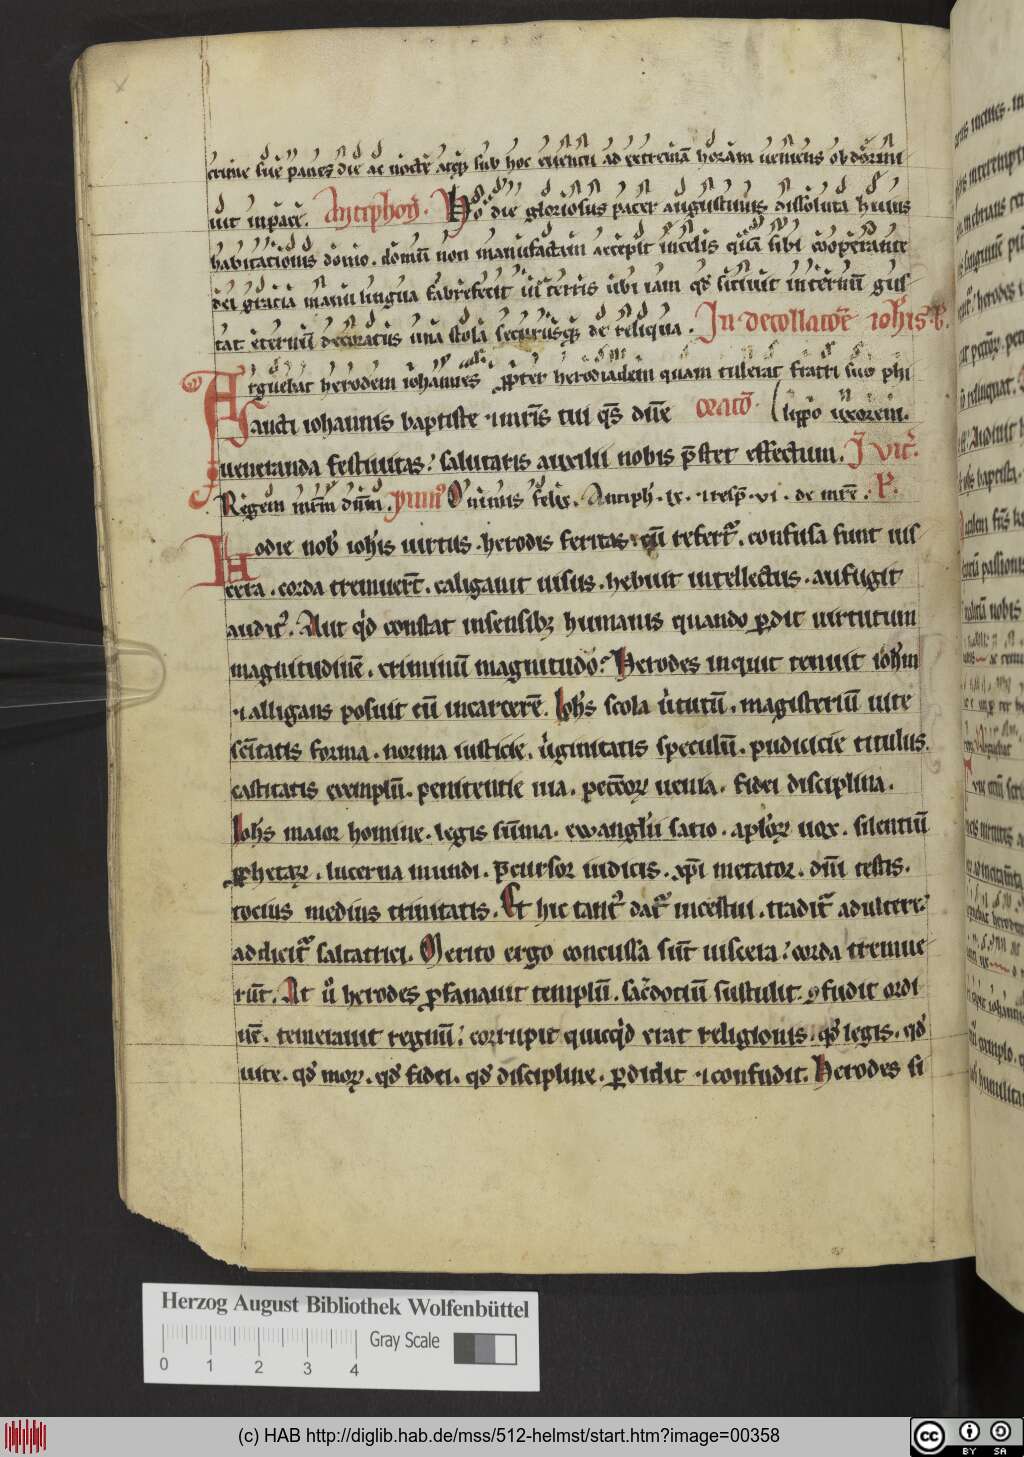 crime sue panes die ac nocte atq; sub hoc euentu ad extremā horam ueniens obdormi
uit in pace. Antiphoñ. Hodie gloriosus pater augustinus dissoluta huius
habitationis domo. domū non manufactam accepit in celis quā sibi cooperante
dei gratia manu lingua fabrefecit ui terris ubi iam qd sitiuit internū gus
tat eternū decoratus una stola securusq; de reliqua. In decollatōe ioħis .b.
Arguebat herodem iohannes ꝓpter herodiadem quam tulerat fratri suo phi
Sancti iohannis baptiste ⁊ mr̄is tui qs̄ dn̄e oratō. lippo uxorem.
ueneranda festiuitas; salutaris auxilii nobis p̄stet effectum. J̄ vit̄.
Regem mr̄m dn̄m. ymn̄ Omnius felix. Antiph. ix. ⁊ resp̄. vi. de mr̄e. P.
Hodie nob ioħis uirtus. herodis feritas cū refert̄. confusa sunt uis
cera. corda tremuer̄t. caligauit uisus. hebuit intellectus. aufugit
audit̄. Aut qd constat in sensib; humanis quando ꝑdit uirtutum
magnitudinē. criminū magnitudo? Herodes inquit tenuit ioħm
⁊ alligans posuit eū in carcerē. Ioħs scola u̓tutū. magisteriū uite
scītatis forma. norma iusticie. u̓ginitatis speculū. pudicicie titulus.
castitatis exemplū. penitentie uia. peccōꝝ uenia. fidei disciplina.
Ioħs maior homine. legis sūma. ewanglii satio. aploꝝ uox. silentiū
ꝓphetaꝝ. lucerna mundi. p̄cursor iudicis. xp̄i metator. dn̄i testis.
tocius medius trinitatis. Et hic tant̄ dat̄ incestui. tradit̄ adultere;
addicit̄ saltatrici. Merito ergo concussa sūt uiscera; corda tremue
rūt. At u̓ herodes ꝓfanauit templū. sac̄dotiū sustulit. ꝯfudit ordi
nē. temerauit regnū; corrupit quicqd erat religionis. qd legis. qd
uite. qd moꝝ. qd fidei. qd discipline. ꝑdidit ⁊ confudit. Herodes si
Herzog August Bibliothek Wolfenbüttel
Gray Scale
0 1 2 3 4
(c) HAB http://diglib.hab.de/mss/512-helmst/start.htm?image=00358
cc BY SA